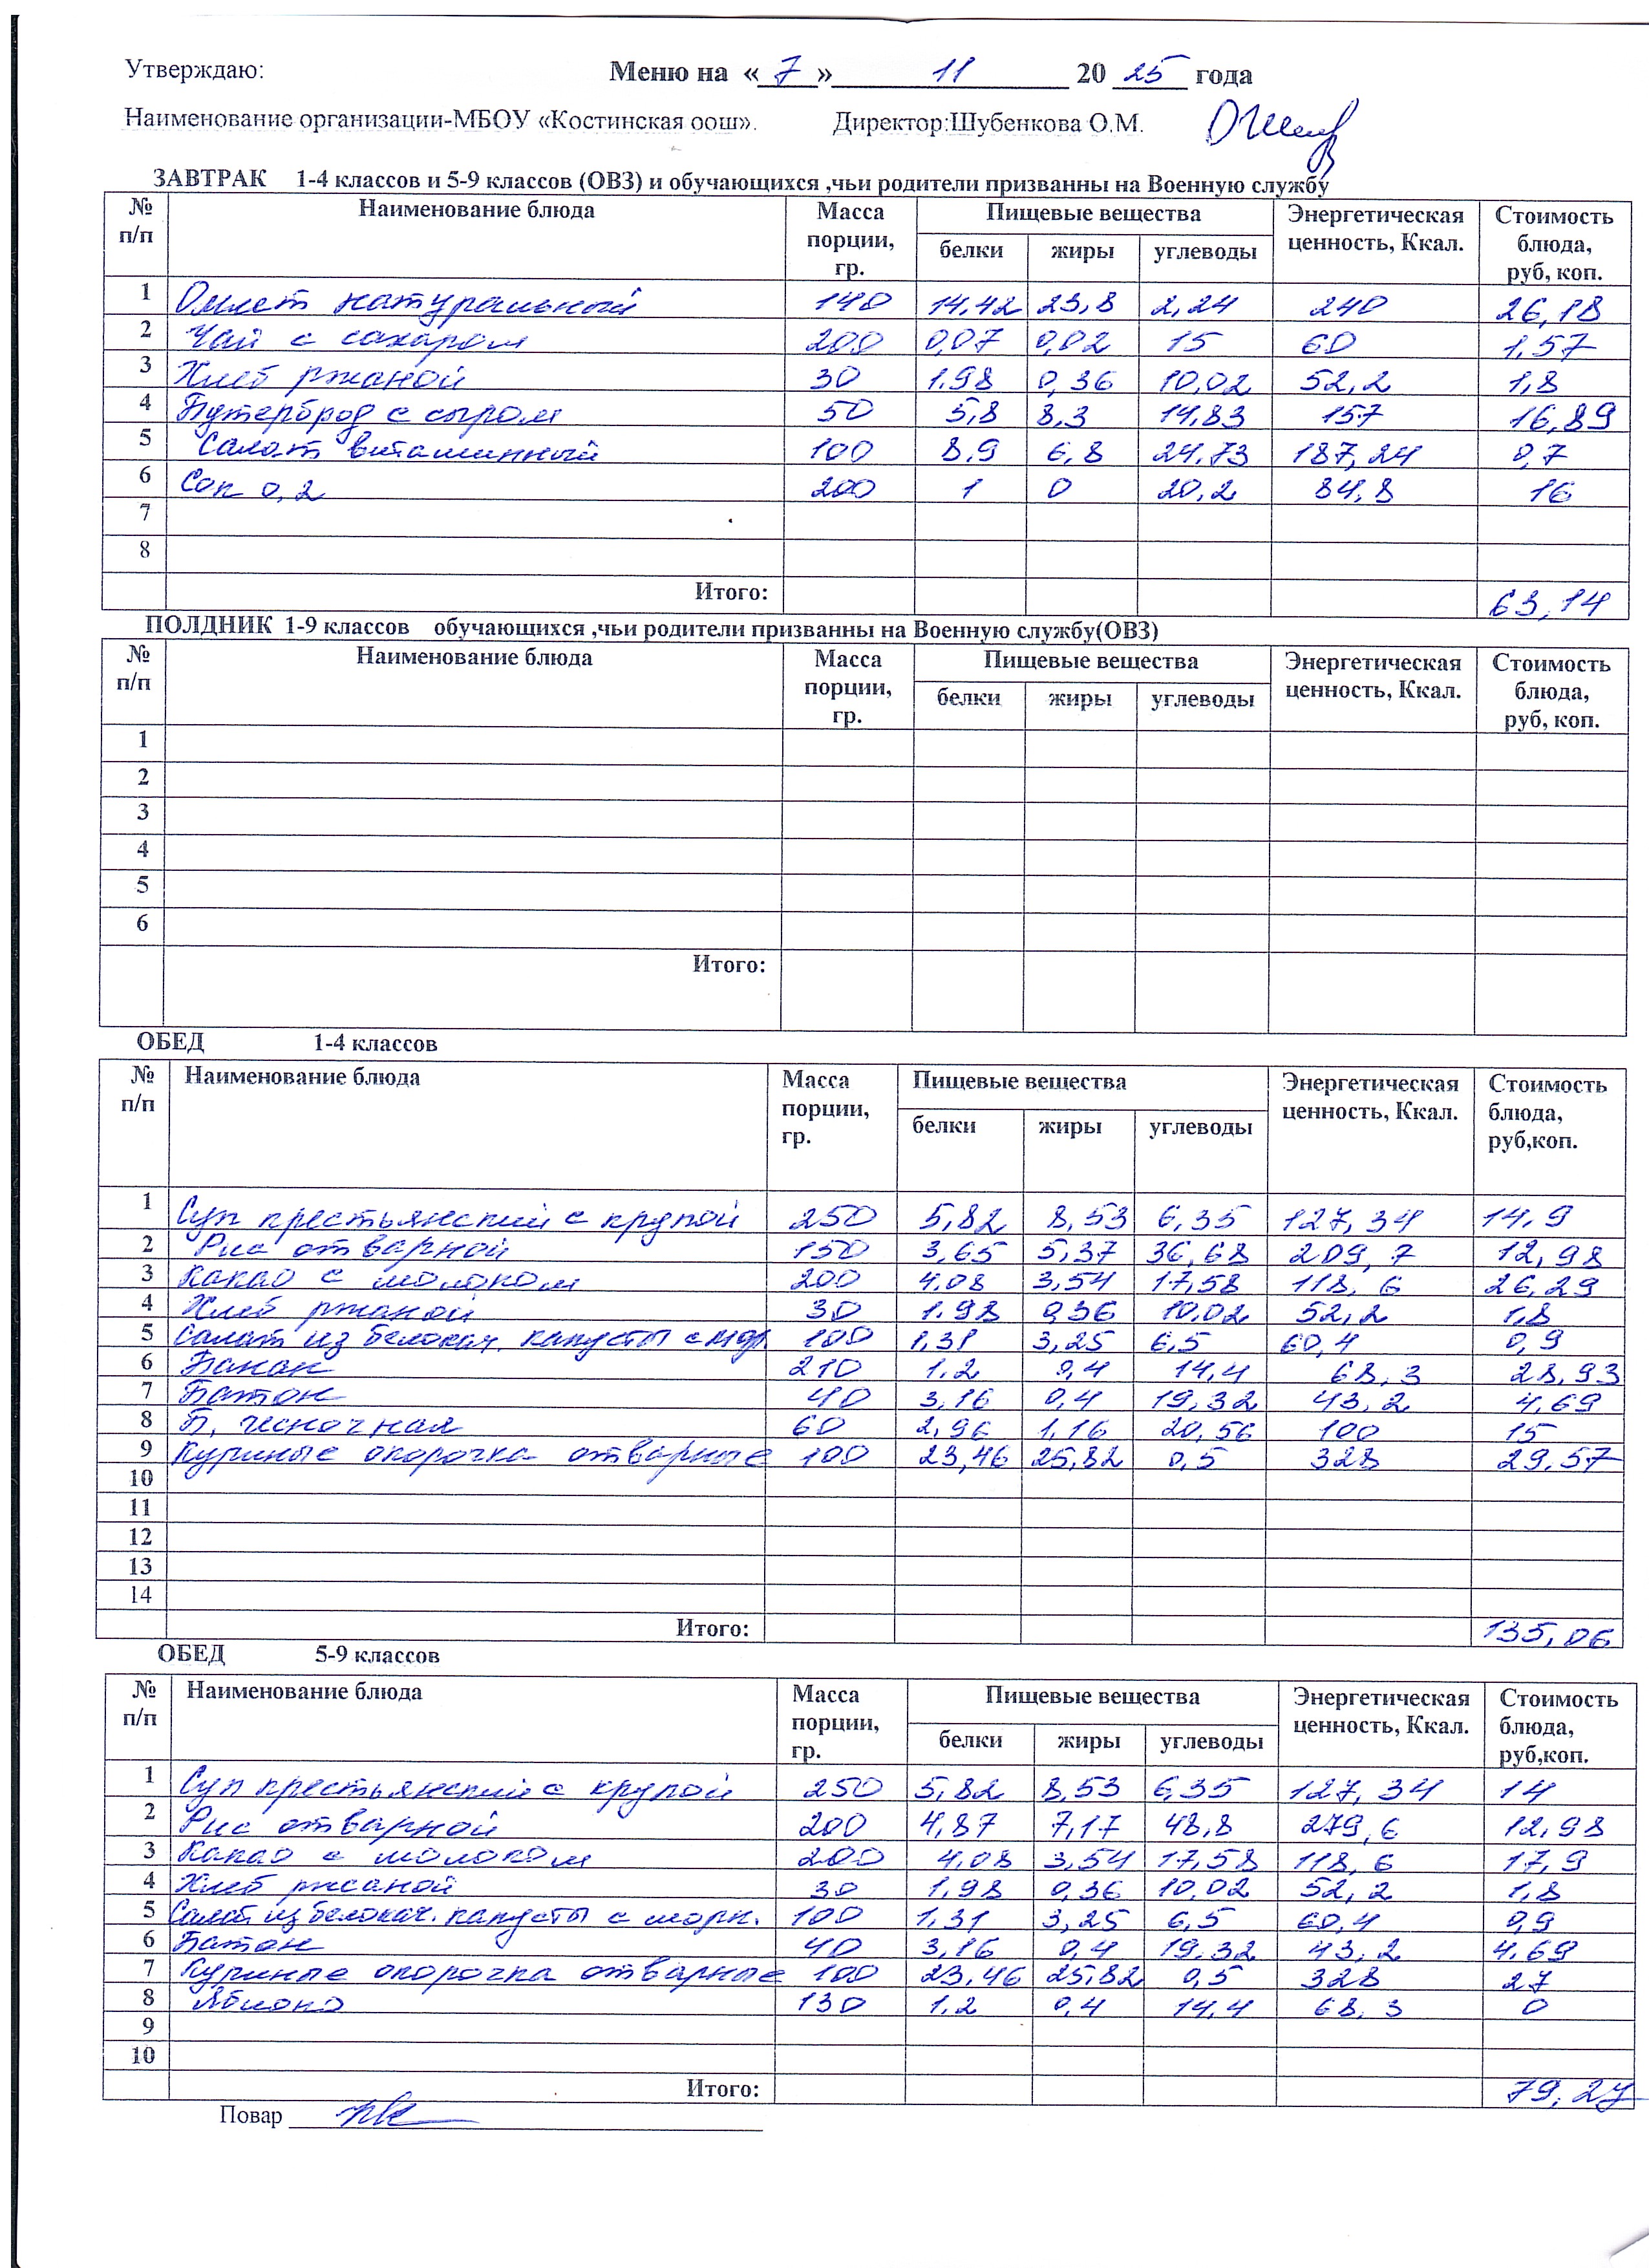 Утверждаю: Меню на « 7 » 11 20 25 года
Наименование организации-МБОУ «Костинская оош». Директор:Шубенкова О.М.
ЗАВТРАК 1-4 классов и 5-9 классов (ОВЗ) и обучающихся ,чьи родители призванны на Военную службу
№ п/п Наименование блюда Масса порции, гр. Пищевые вещества Энергетическая ценность, Ккал. Стоимость блюда, руб, коп.
белки жиры углеводы
1 Омлет натуральный 140 14,42 23,8 2,24 240 26,18
2 Чай с сахаром 200 0,07 0,02 15 60 1,57
3 Хлеб ржаной 30 1.98 0,36 10,02 52,2 1,8
4 Бутерброд с сыром 50 5,8 8,3 14,83 157 16,89
5 Салат витаминный 100 8,9 6,8 24,73 187,24 0,7
6 Сок 0,2 200 1 0 20,2 84,8 16
7
8
Итого: 63,14
ПОЛДНИК 1-9 классов обучающихся ,чьи родители призванны на Военную службу(ОВЗ)
№ п/п Наименование блюда Масса порции, гр. Пищевые вещества Энергетическая ценность, Ккал. Стоимость блюда, руб, коп.
белки жиры углеводы
1
2
3
4
5
6
Итого:
ОБЕД 1-4 классов
№ п/п Наименование блюда Масса порции, гр. Пищевые вещества Энергетическая ценность, Ккал. Стоимость блюда, руб,коп.
белки жиры углеводы
1 Суп крестьянский с крупой 250 5,82 8,53 6,35 127,34 14,9
2 Рис отварной 150 3,65 5,37 36,68 209,7 12,98
3 Какао с молоком 200 4,08 3,54 17,58 118,6 26,29
4 Хлеб ржаной 30 1.98 0,36 10,02 52,2 1,8
5 Салат из белокач. капусты с 100 1,31 3,25 6,5 60,4 0,9
6 Банан 210 1,2 0,4 14,4 68,3 28,93
7 Батон 40 3,16 0,4 19,32 43,2 4,69
8 Б. чесночная 60 2,96 1,16 20,56 100 15
9 Куриные окорочка отварные 100 23,46 25,82 0,5 328 29,57
10
11
12
13
14
Итого: 135,06
ОБЕД 5-9 классов
№ п/п Наименование блюда Масса порции, гр. Пищевые вещества Энергетическая ценность, Ккал. Стоимость блюда, руб,коп.
белки жиры углеводы
1 Суп крестьянский с крупой 250 5,82 8,53 6,35 127,34 14
2 Рис отварной 200 4,87 7,17 48,8 279,6 12,98
3 Какао с молоком 200 4,08 3,54 17,58 118,6 17,9
4 Хлеб ржаной 30 1,98 0,36 10,02 52,2 1,8
5 Салат из белокач. капусты с морк. 100 1,31 3,25 6,5 60,4 0,9
6 Батон 40 3,16 0,4 19,32 43,2 4,69
7 Куриные окорочка отварные 100 23,46 25,82 0,5 328 27
8 Яблоко 130 1,2 0,4 14,4 68,3 0
9
10
Итого: 79,27
Повар